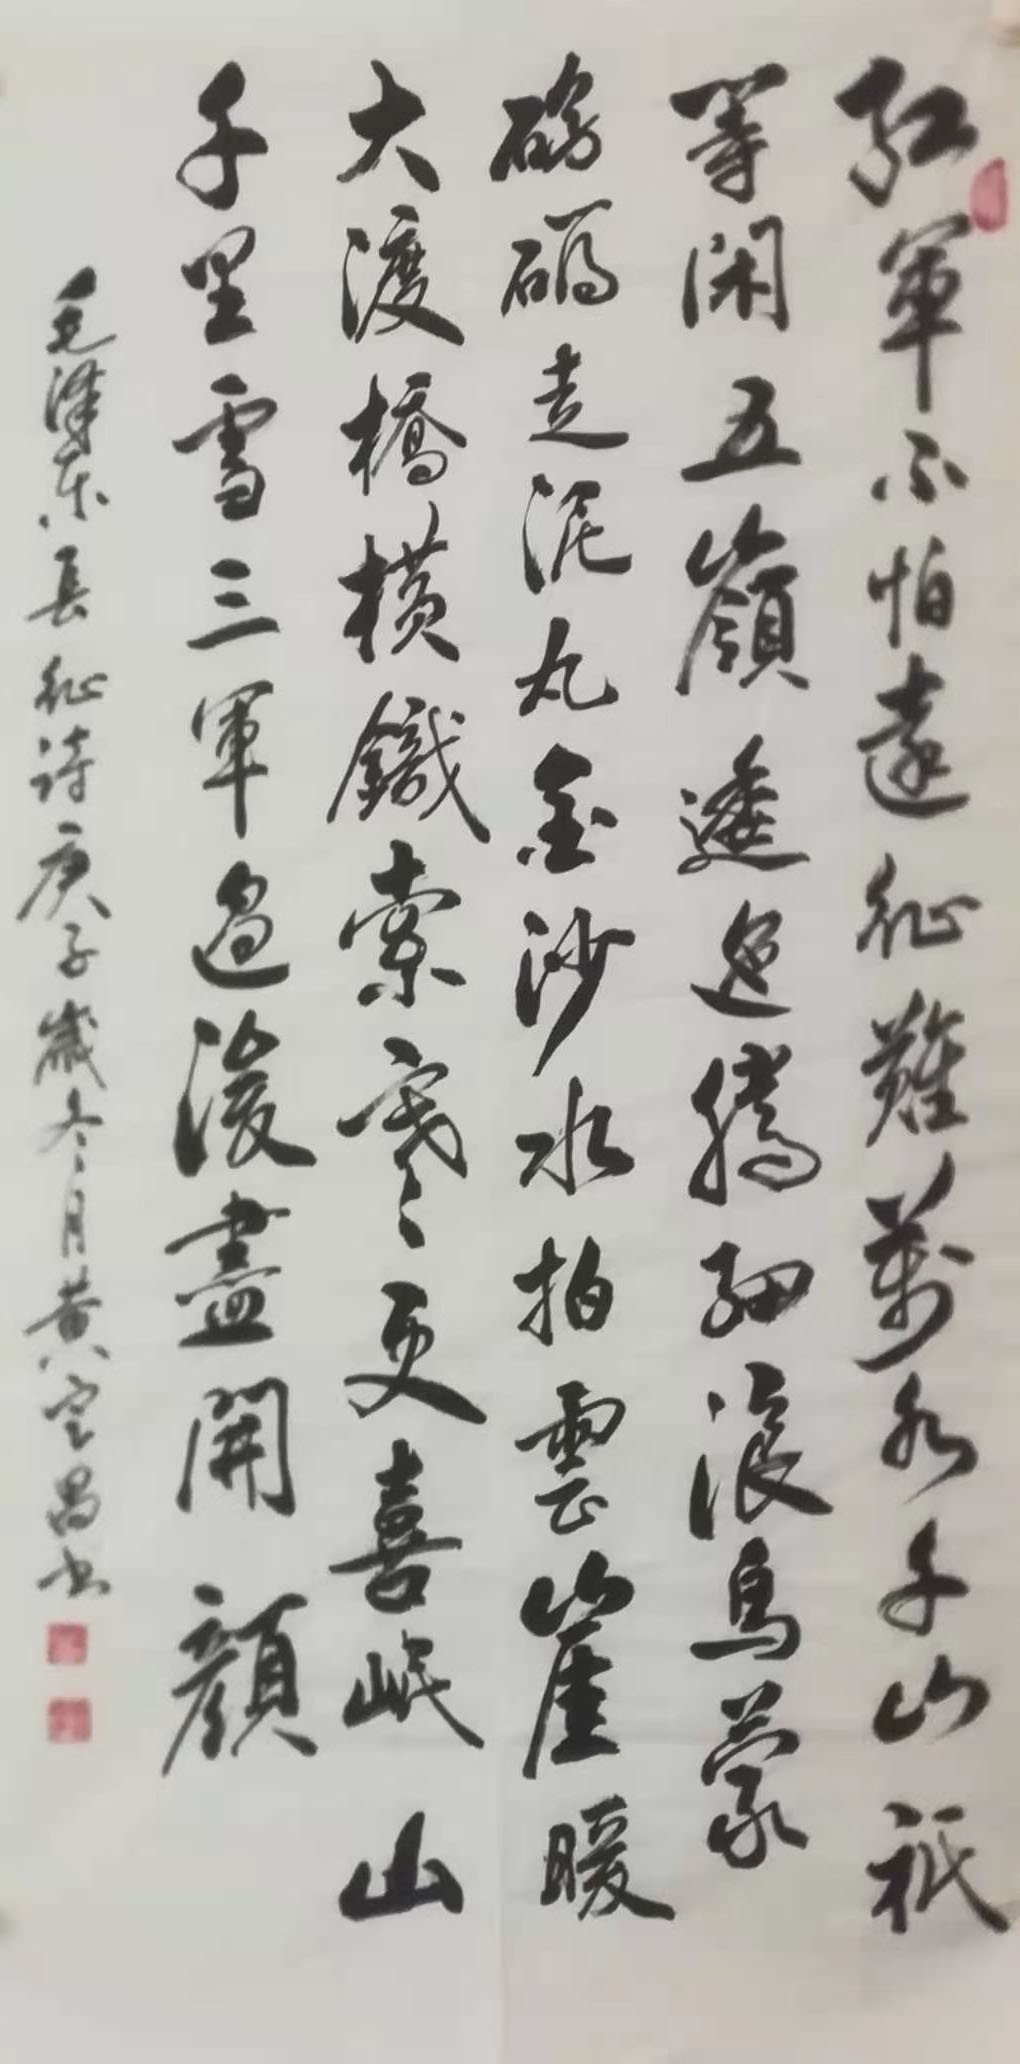 紅軍不怕遠征難萬水千山祇
等閑五嶺逶迤騰細浪烏蒙
磅礴走泥丸金沙水拍雲崖暖
大渡橋橫鐵索寒更喜岷山
千里雪三軍過後盡開顏
毛澤东長征詩庚子歲冬月黄昌书